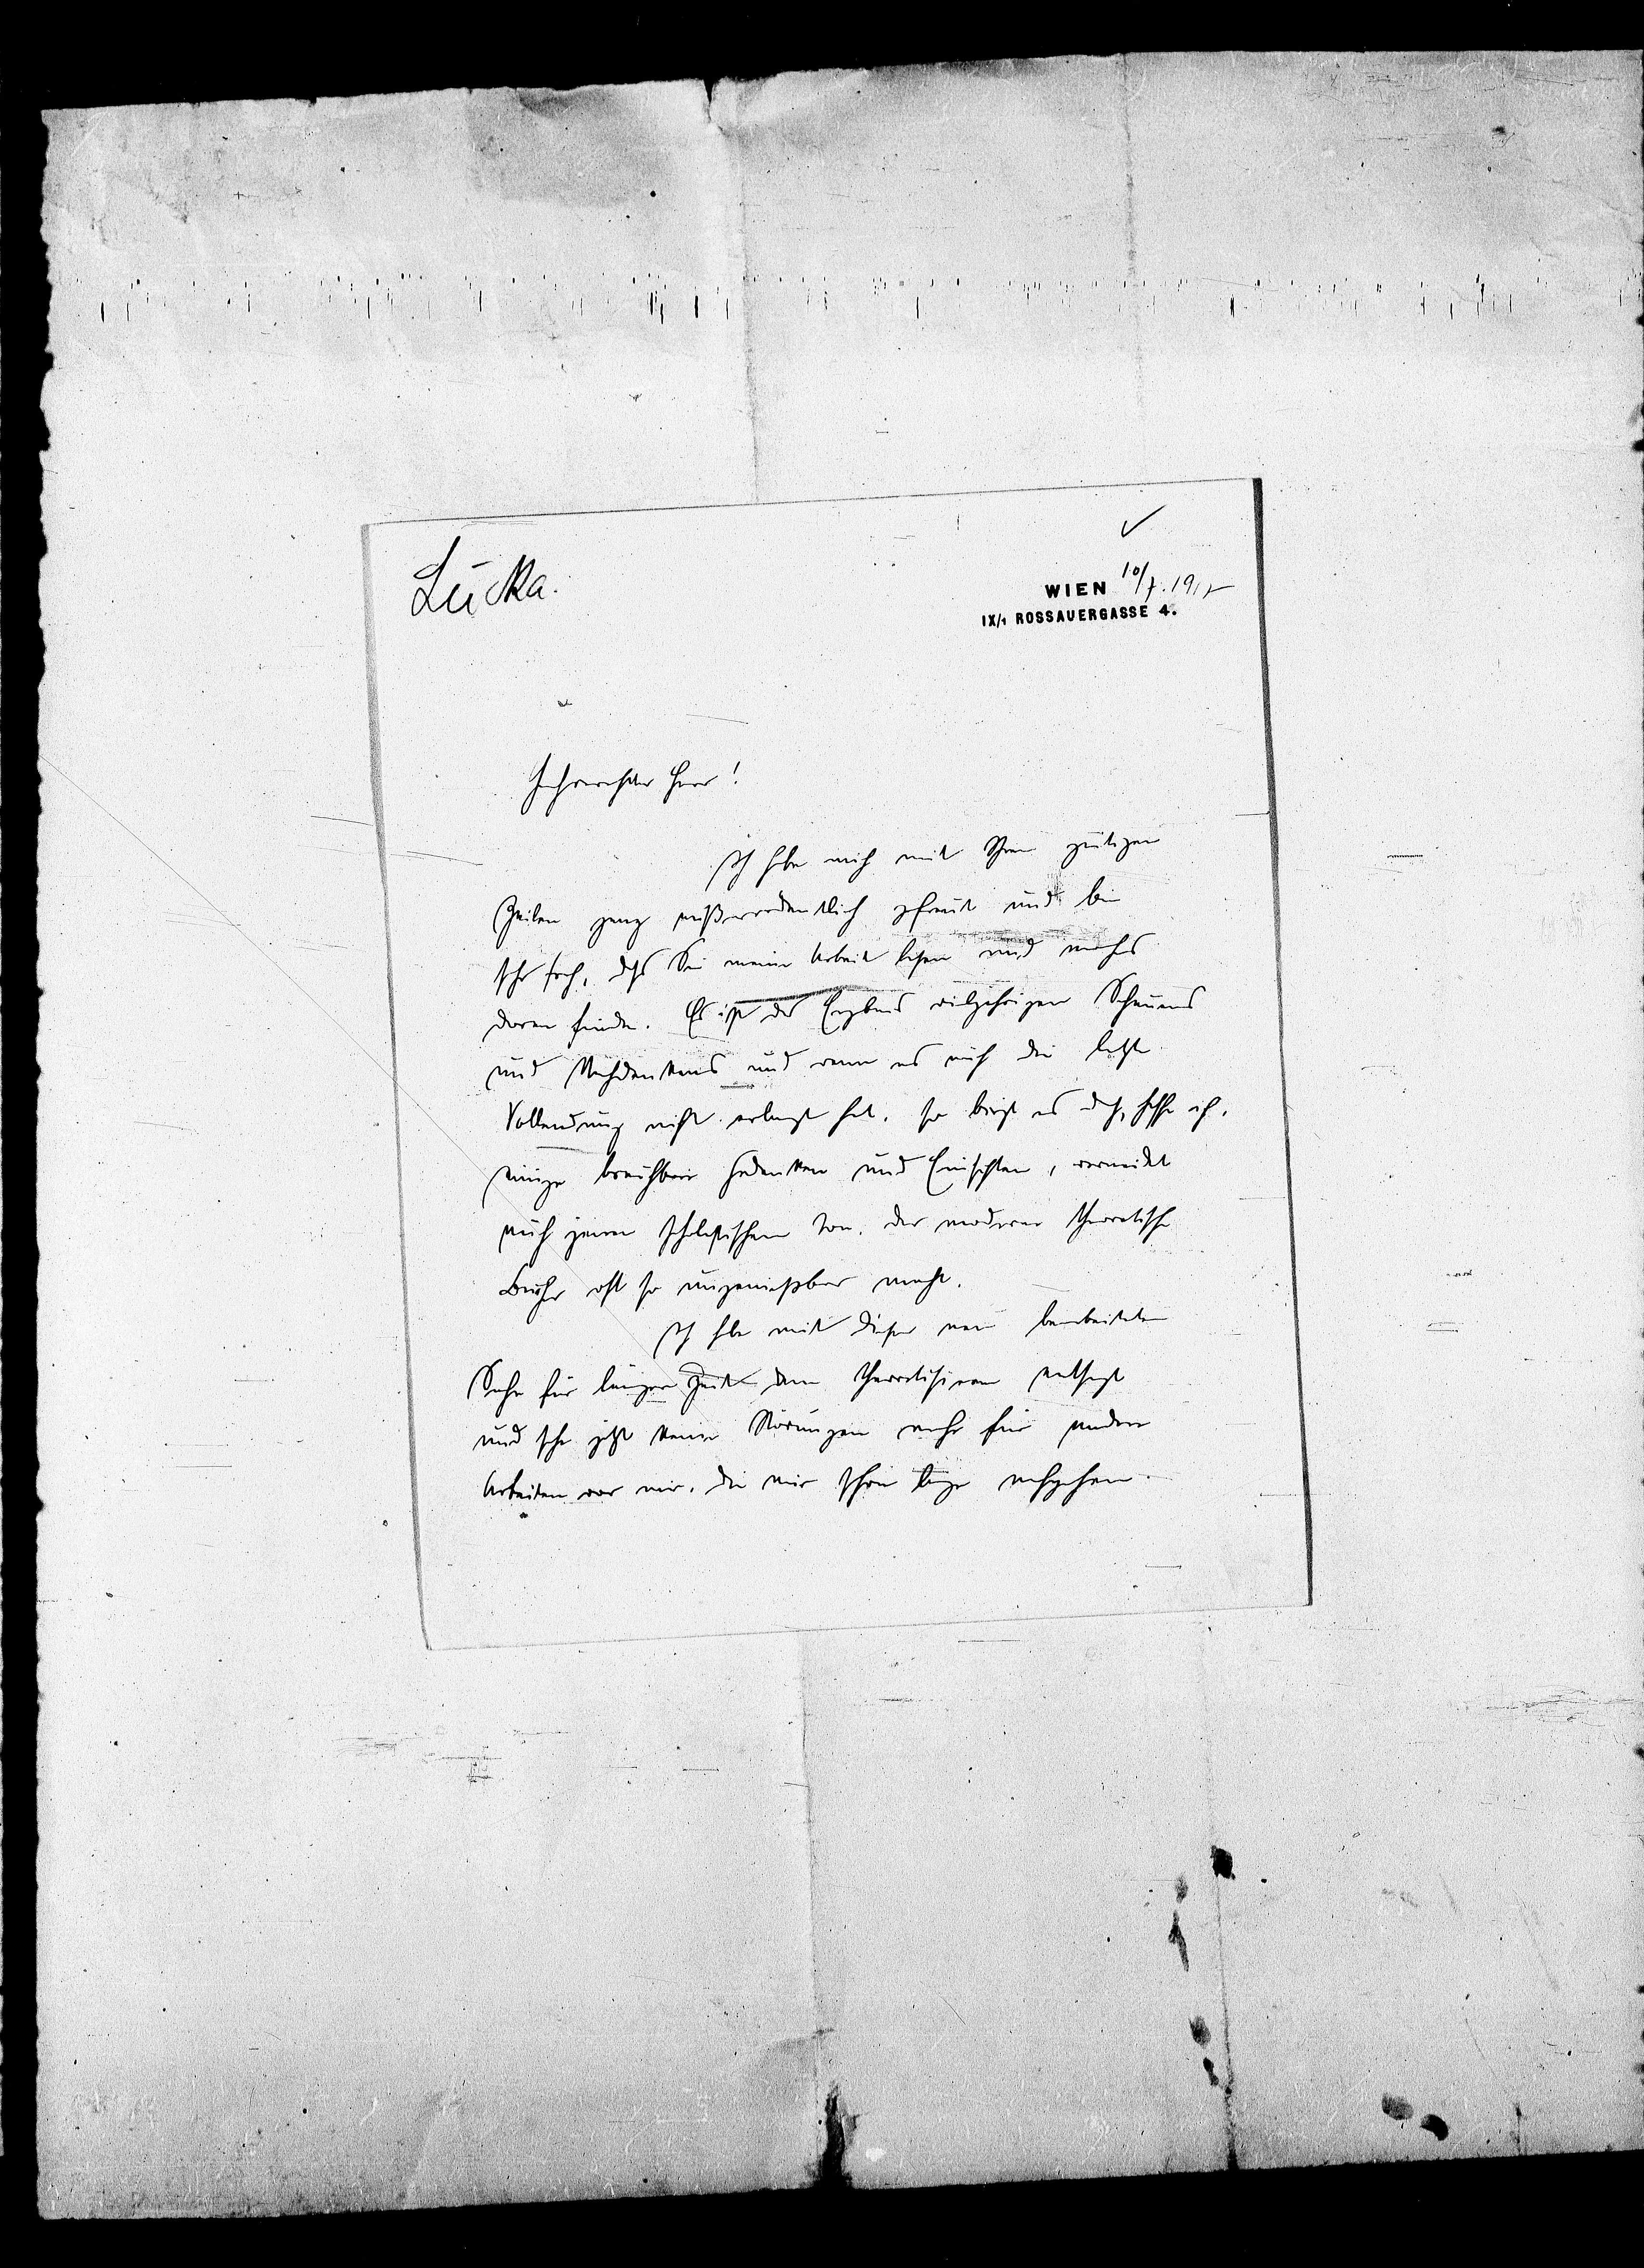 Lucka.
WIEN 10/7.191
IX/1 ROSSAUERGASSE 4.
Hochverehrter Herr!
Ich habe mich mit Ihren gütigen
Zeilen ganz außerordentlich gefreut und bin
sehr froh, daß Sie meine Arbeit lesen und manches
daran finden. Es ist das Ergebnis vieljährigen Schauens
und Nachdenkens und wenn es auch die letzte
Vollendung nicht erlangt hat, so birgt es doch, hoffe ich,
einige brauchbare Gedanken und Einsichten, vermeidet
auch jenen scholastischen Ton, der moderne theoretische
Bücher oft so ungenießbar macht.
Ich habe mit dieser neu bearbeiteten
Sache für längere Zeit dem Theoretisieren entsagt
und sehe jetzt keine Störungen mehr für andere
Arbeiten vor mir, die mir schon lange nachgehen.